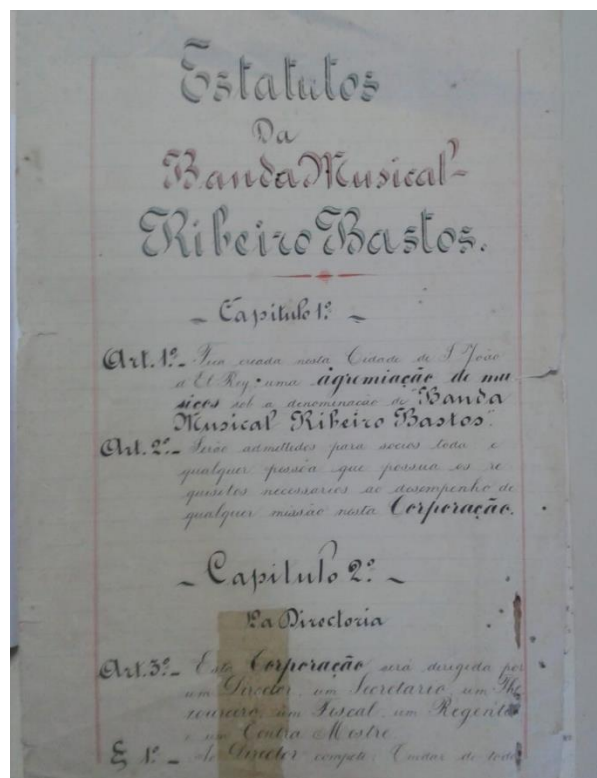 Estatutos
Da
Banda Musical
Ribeiro Bastos.
Capitulo 1º
Art. 1º Fica creada nesta Cidade de S. João
d'El Rey, uma agremiação de mu-
sicos sob a denominação de "Banda
Musical Ribeiro Bastos".
Art. 2º Serão admettidos para socios toda e
qualquer pessôa que possua os re
quisitos necessarios ao desempenho de
qualquer missão nesta Corporação.
Capitulo 2º
Da Directoria
Art. 3º Esta Corporação será derigida por
um Director, um Secretario, um The
soureiro, um Fiscal, um Regente
e um Contra Mestre
§ 1º Ao Director compete: Cuidar de todo